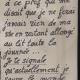 à ce prix qui me
disait que je ne ferais
jamais rien de ma
vie en restant allongé
au lit toute la
journée.
Je te signale
qu'actuellement je